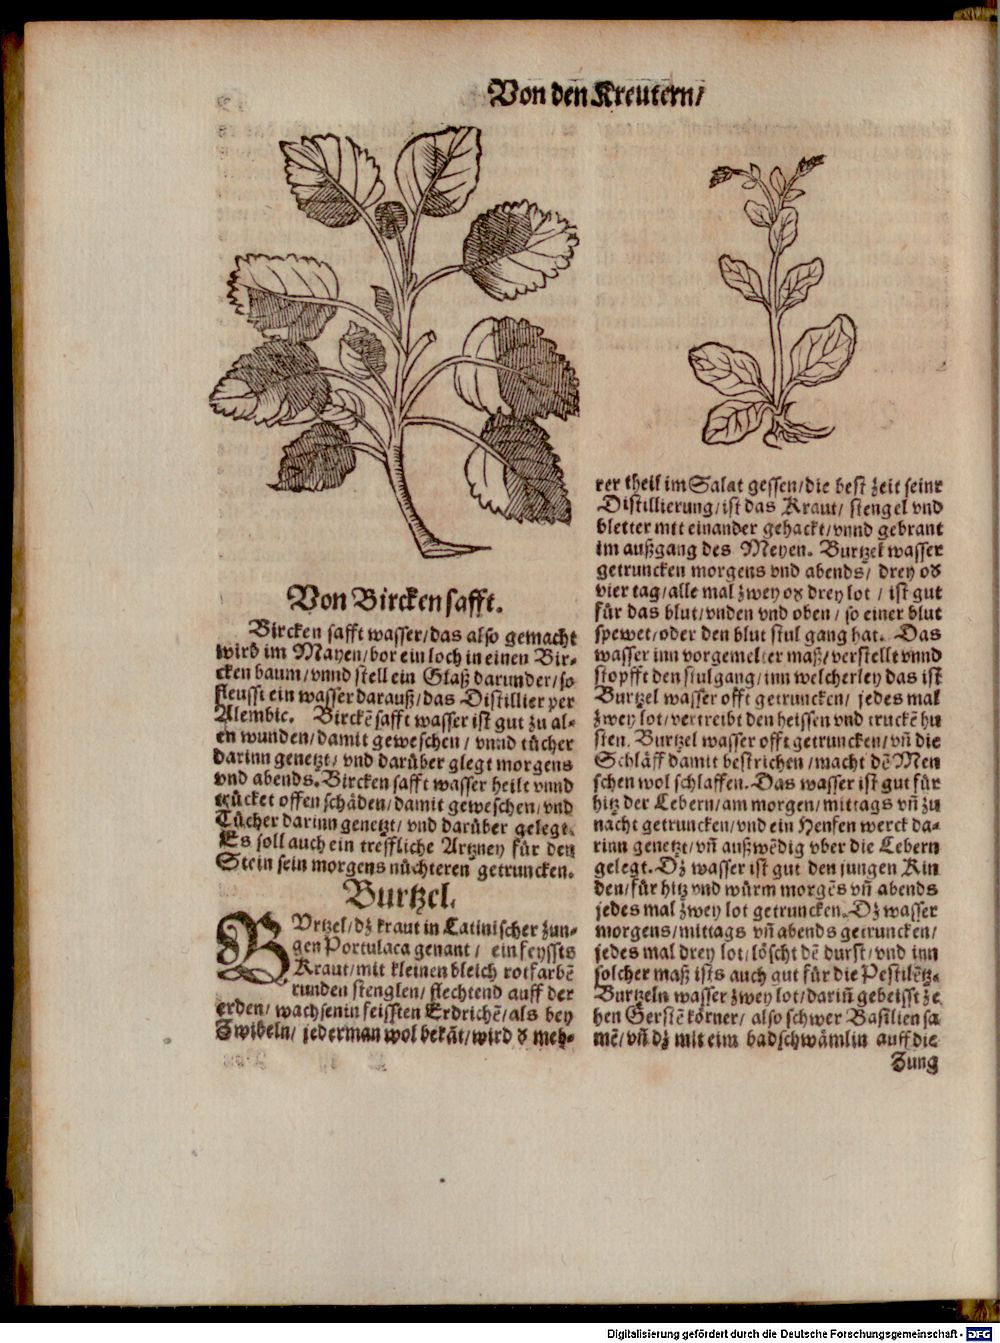 Von den Kreutern/
Von Bircken safft.
Bircken safft wasser/das also gemacht
wird im Mayen/bor ein loch in einen Bir-
cken baum/vnnd stell ein Glaß darunder/so
fleusst ein wasser darauß/das Distillier per
Alembic. Birckē safft wasser ist gut zu al-
en wunden/damit geweschen/ vnnd tücher
darinn genetzt/ vnd darüber glegt morgens
vnd abends. Bircken safft wasser heilt vnnd
trücket offen schäden/damit geweschen/vnd
Tücher darinn genetzt/ vnd darüber gelegt.
Es soll auch ein treffliche Artzney für den
Stein sein morgens nüchteren getruncken.
Burtzel.
BVrtzel/dz kraut in Latinischer zun-
gen Portulaca genant/ ein feyssts
Kraut/mit kleinen bleich rotfarbē
runden stenglen/ flechtend auff der
erden/ wachsen in feissten Erdrichē/als bey
Zwibeln/ jederman wol bekāt/wird d̕ meh-
rer theil im Salat gessen/die best zeit seinr
Distillierung/ist das Kraut/ stengel vnd
bletter mit einander gehackt/vnnd gebrant
im außgang des Meyen. Burtzel wasser
getruncken morgens vnd abends/ drey od̕
vier tag/alle mal zwey od̕ drey lot / ist gut
für das blut/vnden vnd oben/ so einer blut
spewet/oder den blut stul gang hat. Das
wasser inn vorgemelter maß/verstellt vnnd
stopfft den stulgang/inn welcherley das ist
Burtzel wasser offt getruncken/ jedes mal
zwey lot/vertreibt den heissen vnd truckē hu
sten. Burtzel wasser offt getruncken/vn̄ die
Schläff damit bestrichen/macht dē Men
schen wol schlaffen. Das wasser ist gut für
hitz der Lebern/am morgen/mittags vn̄ zu
nacht getruncken/vnd ein Henfen werck da-
rinn genetzt/vn̄ außwēdig vber die Lebern
gelegt. Dz wasser ist gut den jungen Kin
den/für hitz vnd würm morgēs vn̄ abends
jedes mal zwey lot getruncken. Dz wasser
morgens/mittags vn̄ abends getruncken/
jedes mal drey lot/löscht dē durst/vnd inn
solcher maß ists auch gut für die Pestilētz-
Burtzeln wasser zwey lot/darin̄ gebeisst ze
hen Gerstē körner/ also schwer Basilien sa
mē/vn̄ dz mit eim badschwämlin auff die
Zung
Digitalisierung gefördert durch die Deutsche Forschungsgemeinschaft - DFG